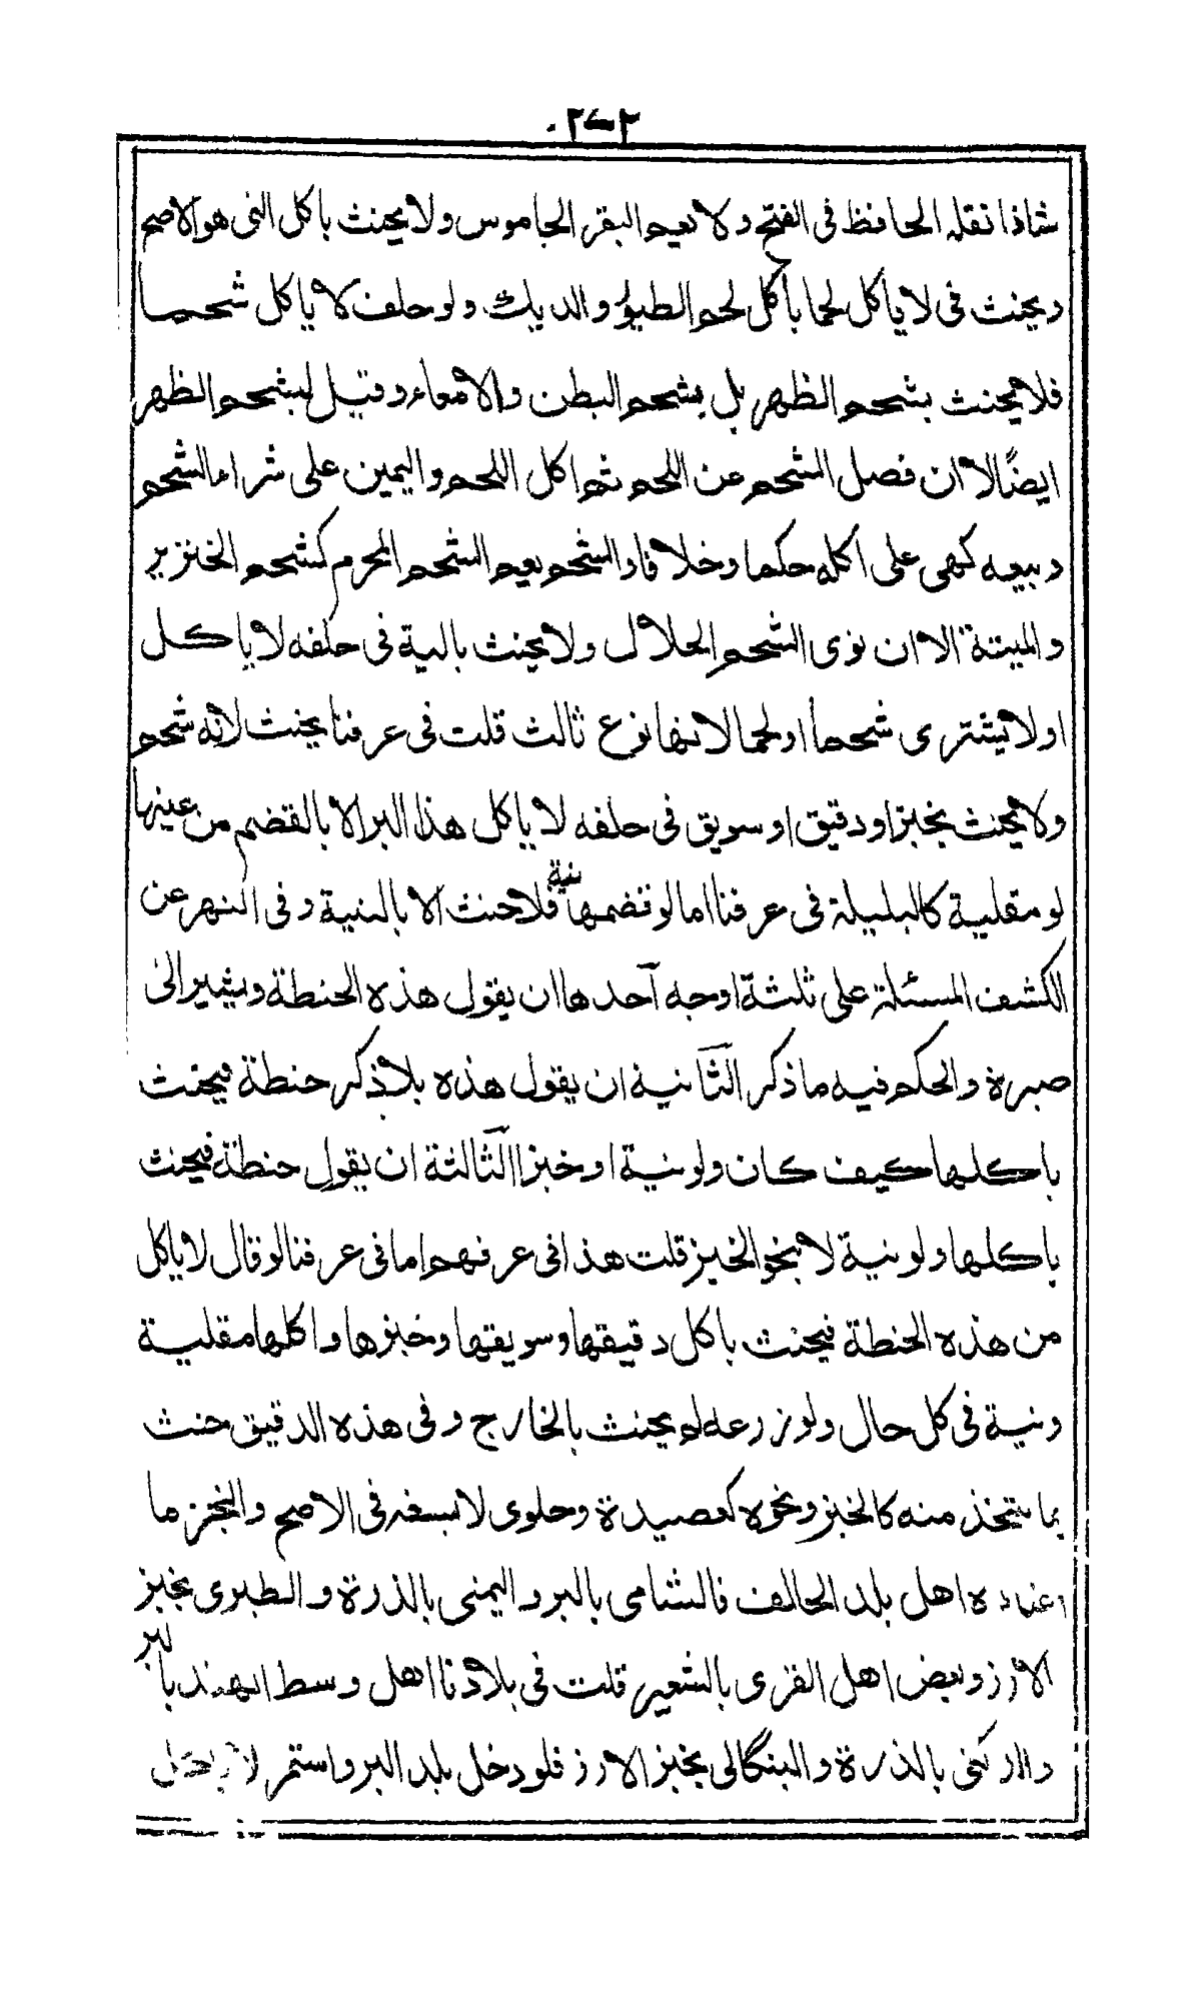 شاذا نقله الحافظ فى الفتح ولا يعم البقر الجاموس ولا يحنث باكل النى هو الاصح
ويحنث فى لا ياكل لحما باكل لحم الطيور والديك ولو حلف لا ياكل شحما
فلا يحنث بشحم الظهر بل بشحم البطن والامعاء وقيل بشحم الظهر
ايضًا الا ان فصل الشحم عن اللحم ثم اكل اللحم واليمين على شراء الشحم
وبيعه كهى على اكله حكما وخلافا والشحم يعم الشحم المحرم كشحم الخنزير
والميتة الا ان نوى الشحم الحلال ولا يحنث بالية فى حلفه لا ياكل
او لا يشترى شحما او لحما لانها نوع ثالث قلت فى عرفنا يحنث لانه شحم
ولا يحنث بخبز او دقيق او سويق فى حلفه لا ياكل هذا البر الا بالقضم من عينها
لو مقلية كالبليلة فى عرفنا اما لو قضمها نية فلا حنث الا بالنية وفى النهر عن
الكشف المسئلة على ثلثة اوجه آحدها ان يقول هذه الحنطة ويشير الى
صبرة والحكم فيه ما ذكر الثانية ان يقول هذه بلا ذكر حنطة فيحنث
باكلها كيف كان ولو نية او خبزا الثالثة ان يقول حنطة فيحنث
باكلها ولو نية لا بنحو الخبز قلت هذا فى عرفهم اما فى عرفنا لو قال لا ياكل
من هذه الحنطة فيحنث باكل دقيقها وسويقها وخبزها واكلها مقلية
ونية فى كل حال ولو زرعه لم يحنث بالخارج وفى هذه الدقيق حنث
بما يتخذ منه كالخبز ونحوه كعصيدة وحلوى لا بسفه فى الاصح والخبز ما
اعتاده اهل بلد الحالف فالشامى بالبر واليمنى بالذرة والطبرى بخبز
الارز وبعض اهل القرى بالشعير قلت فى بلادنا اهل وسط الهند بالبر
والدكنى بالذرة والبنگالى بخبز الارز فلو دخل بلد البر واستمر لا